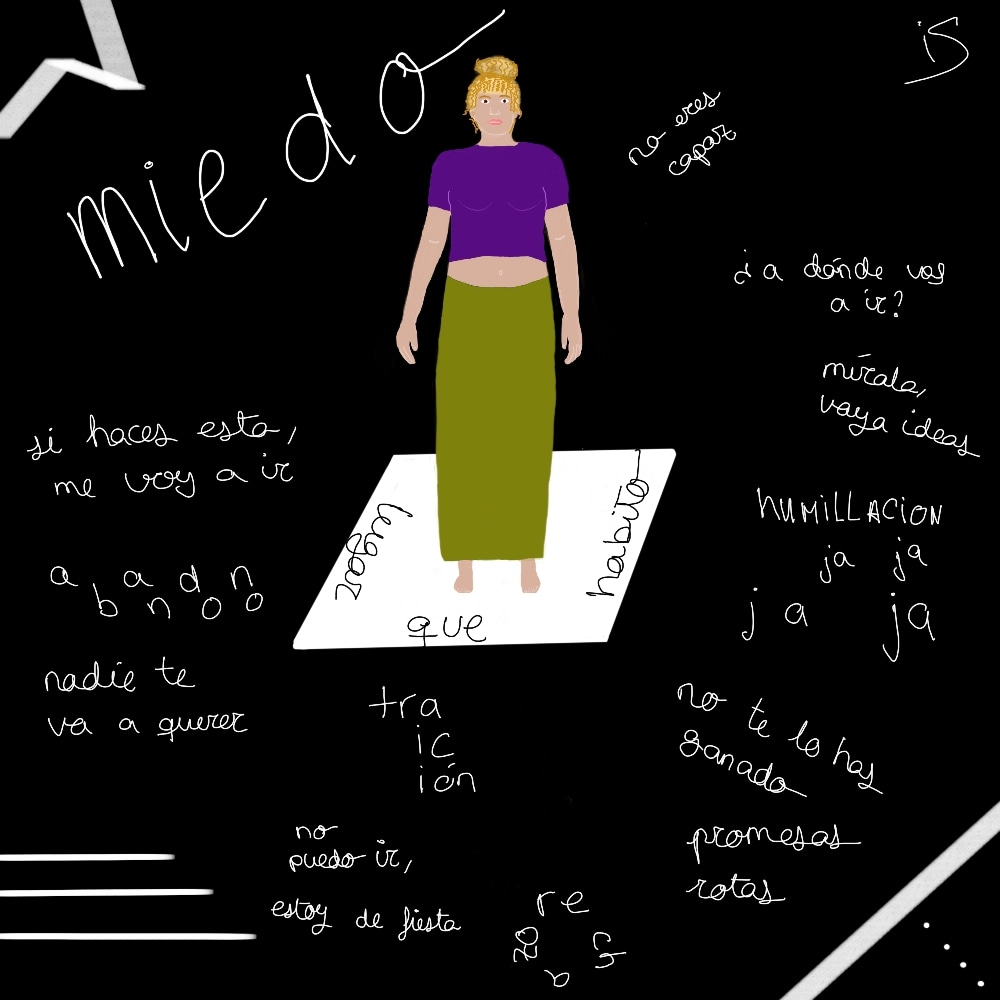 miedo
iS
no eres
capaz
¿a dónde vas
a ir?
mírala,
vaya ideas
si haces esto,
me voy a ir
HUMILLACION
ja ja
ja ja
abandono
lugar
que
habito
nadie te
va a querer
tra
ic
ión
no te lo has
ganado
promesas
rotas
no
puedo ir,
estoy de fiesta
re
ch
a
zo